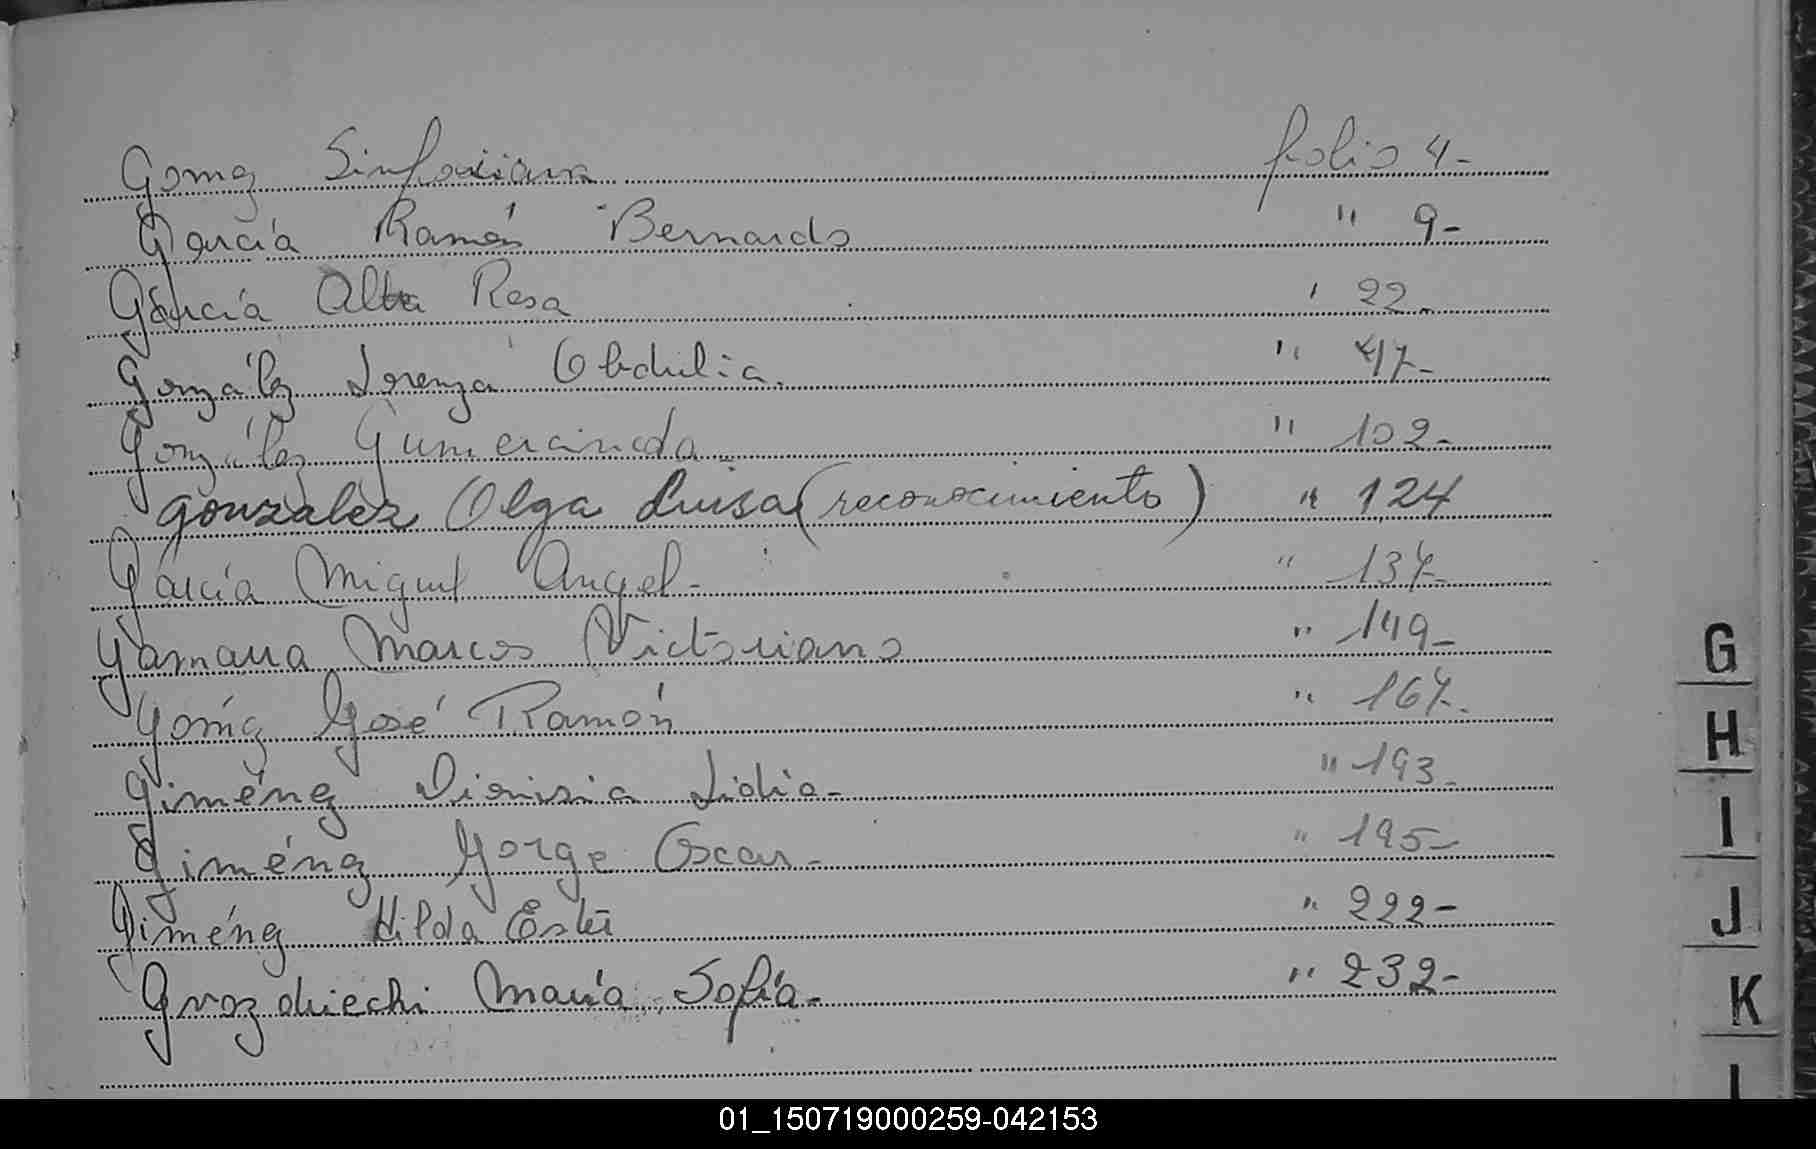 Gomez Sinforiana folio 4-
García Ramón Bernardo " 9-
García Alta Rosa " 22-
González Lorenza Obdulia. " 47-
González Gumercinda " 102-
gonzalez Olga Luisa (reconocimiento) " 124
García Miguel Angel- " 137-
Gamarra Marcos Victoriano " 149-
Goméz José Ramón " 167-
Giménez Dionisia Lidia- " 193-
Giménez Jorge Oscar- " 195-
Giménez Hilda Ester " 222-
María Sofía- " 232-
G
H
I
J
K
L
01_150719000259-042153